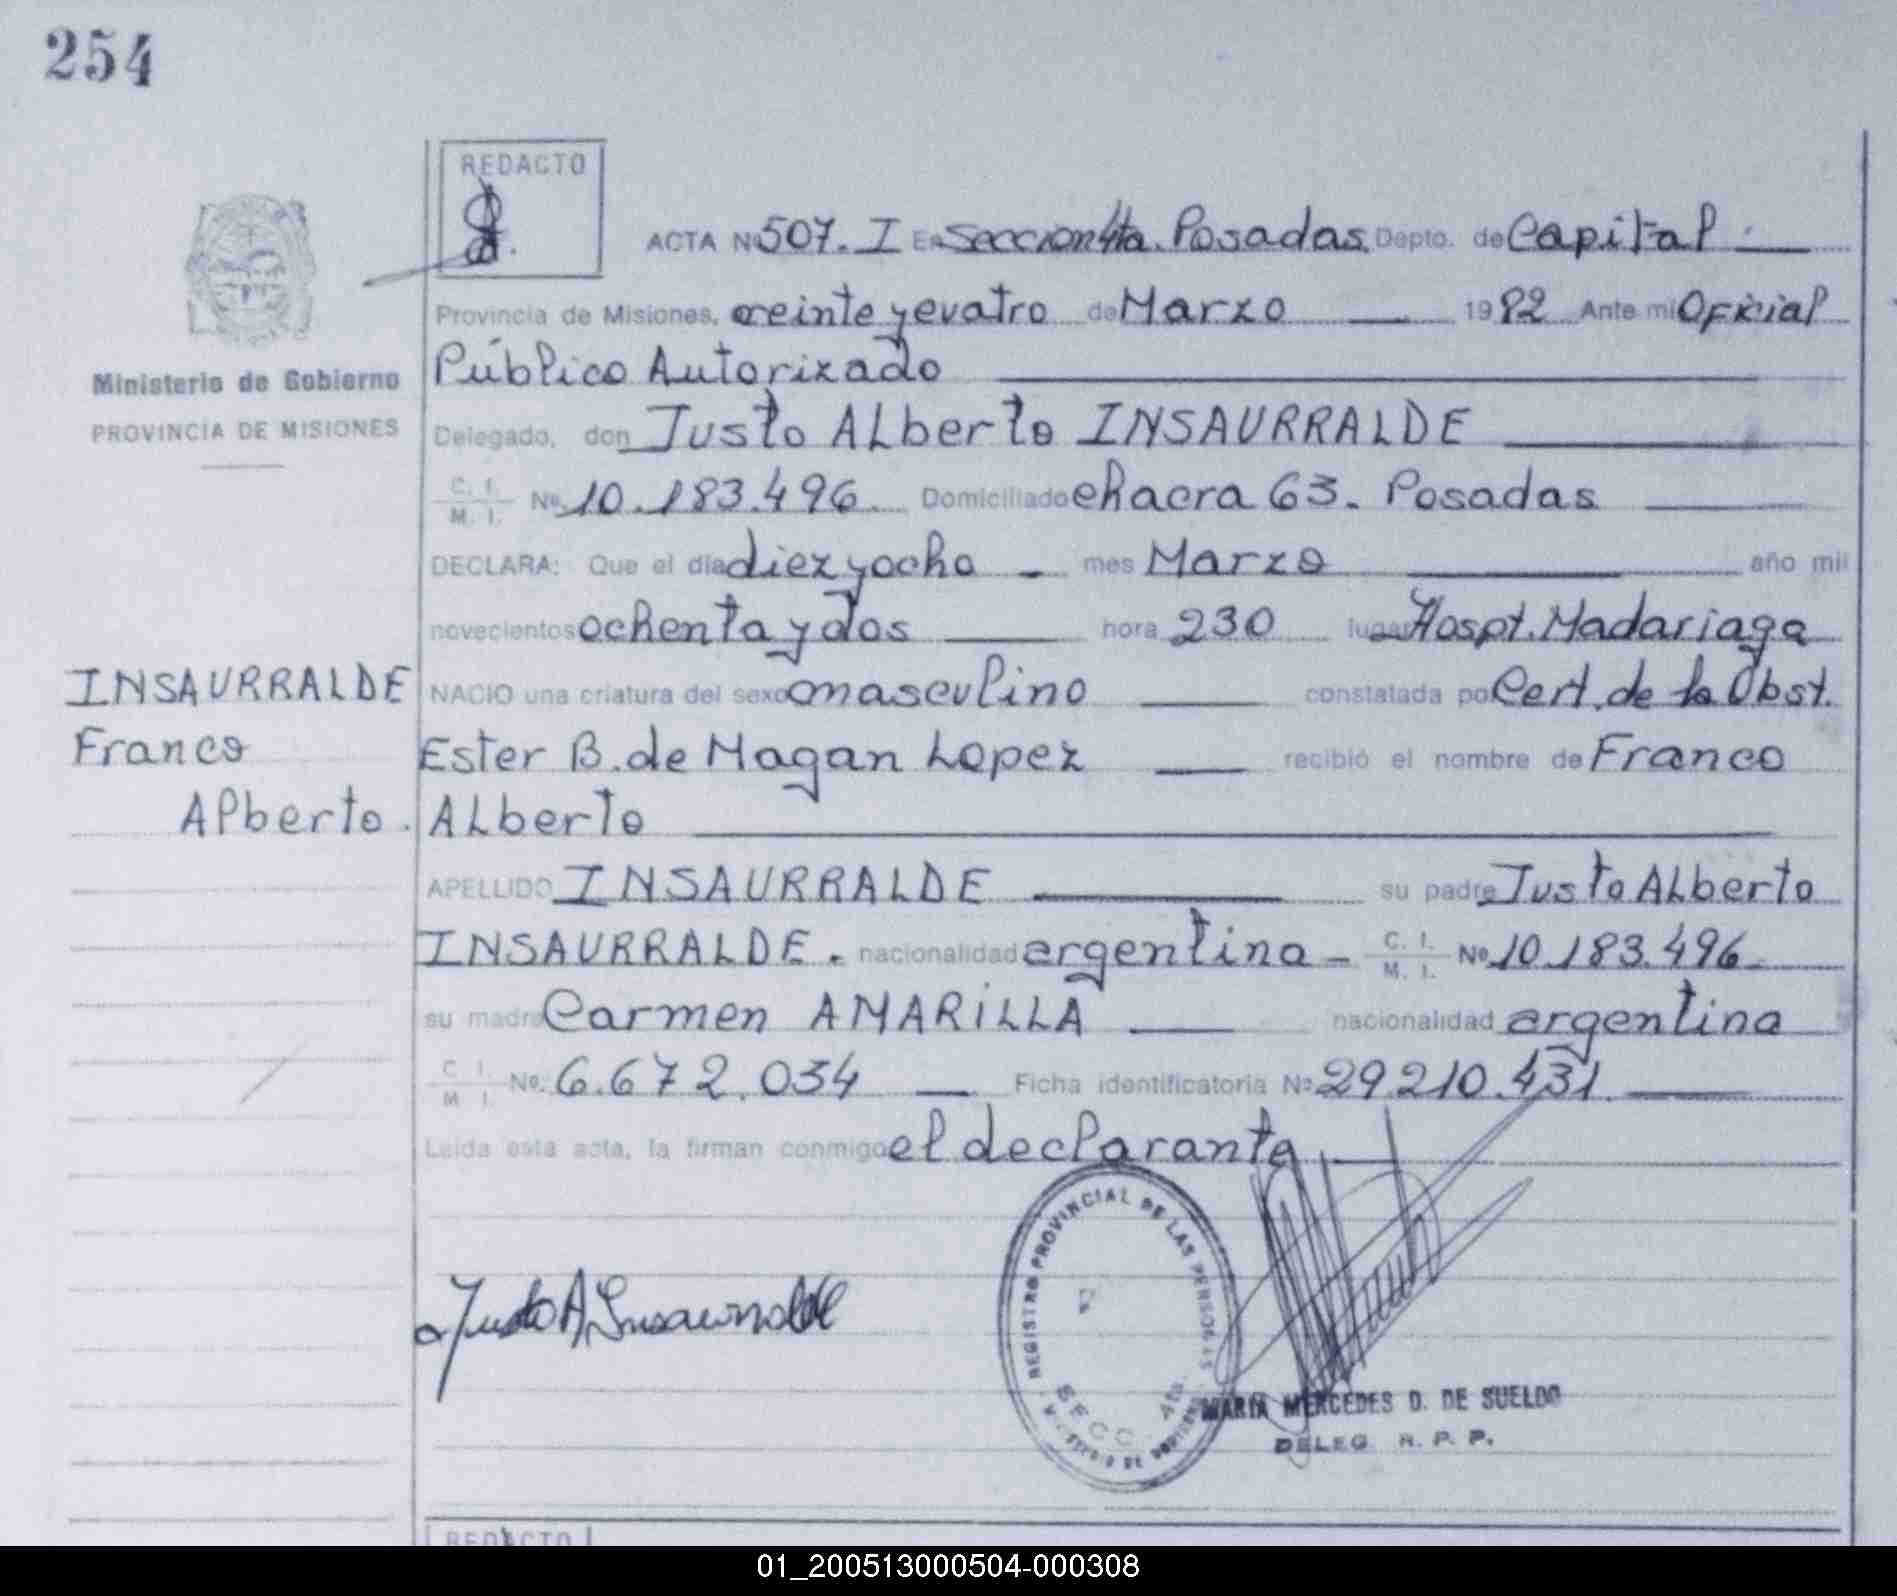 254
REDACTO
ACTA Nº 507. I En Seccion 4ta. Posadas. Depto. de Capital
Provincia de Misiones, veinte y cuatro de Marzo 1982 Ante mi Oficial
Público Autorizado
Ministerio de Gobierno
PROVINCIA DE MISIONES
Delegado, don Justo ALberto INSAURRALDE
C. I.
M. I. Nº 10.183.496. Domiciliado chacra 63. Posadas
DECLARA: Que el día diez y ocho mes Marzo año mil
novecientos ochenta y dos hora 230 lugar Hospt. Madariaga
INSAURRALDE
Franco
Alberto.
NACIO una criatura del sexo masculino constatada por Cert. de la Obst.
Ester B. de Magan Lopez recibió el nombre de Franco
ALberto
APELLIDO INSAURRALDE su padre Justo ALberto
INSAURRALDE. nacionalidad argentina C. I.
M. I. Nº 10.183.496
su madre Carmen AMARILLA nacionalidad argentina
C. I.
M. I. Nº. 6.672.034 Ficha identificatoria Nº 29.210.431.
Leída esta acta, la firman conmigo el declarante
Justo A Insaurralde
REGISTRO PROVINCIAL DE LAS PERSONAS
SECC 4ta.
MARIA MERCEDES D. DE SUELDO
DELEG. R. P. P.
REDACTO
01_200513000504-000308